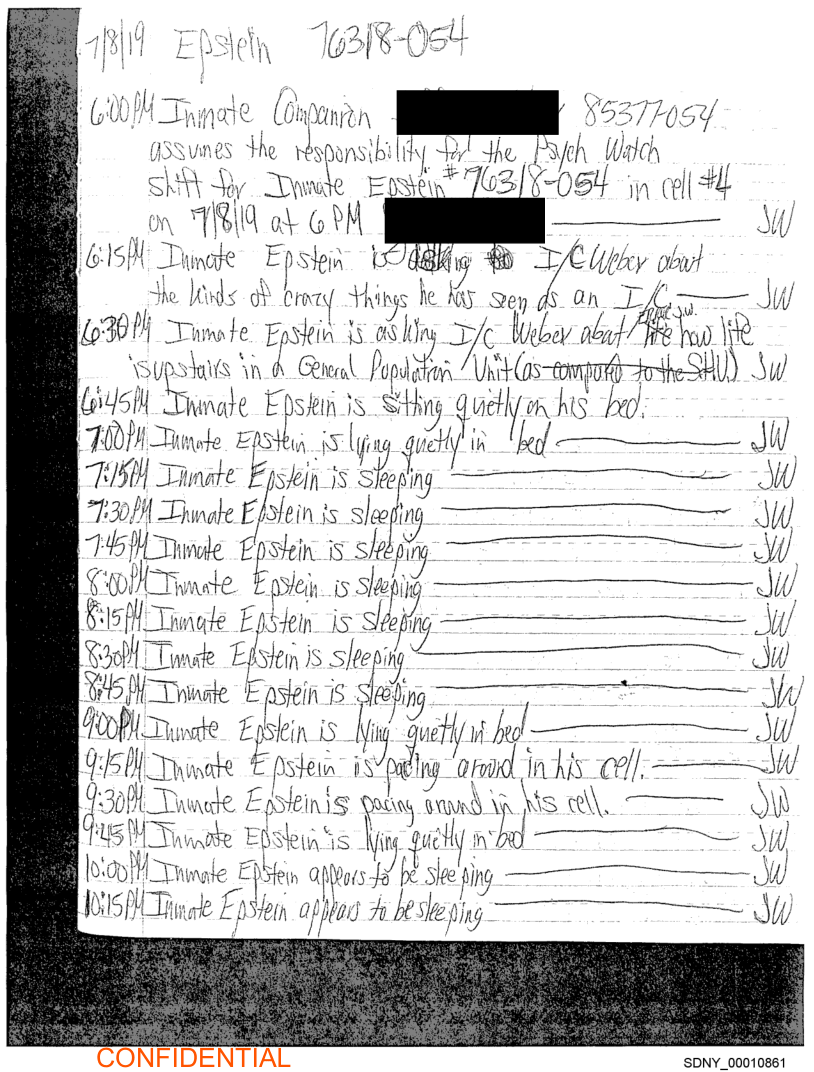 7/8/19 Epstein 76318-054
6:00PM Inmate Companion 85377-054
assumes the responsibility for the Psych Watch
shift for Inmate Epstein #76318-054 in cell #4
on 7/8/19 at 6 PM JW
6:15PM Inmate Epstein is asking I/C Weber about
the kinds of crazy things he has seen as an I/C. JW
Error J.W.
6:30 PM Inmate Epstein is asking I/C Weber about life how life
is upstairs in a General Population Unit (as compared to the SHU) JW
6:45PM Inmate Epstein is sitting quetly on his bed.
7:00PM Inmate Epstein is lying quetly in bed JW
7:15PM Inmate Epstein is sleeping JW
7:30PM Inmate Epstein is sleeping JW
7:45PM Inmate Epstein is sleeping JW
8:00PM Inmate Epstein is sleeping JW
8:15PM Inmate Epstein is sleeping JW
8:30PM Inmate Epstein is sleeping JW
8:45PM Inmate Epstein is sleeping JW
9:00PM Inmate Epstein is lying quetly in bed JW
9:15PM Inmate Epstein is pacing around in his cell. JW
9:30PM Inmate Epstein is pacing around in his cell. JW
9:45PM Inmate Epstein is lying quetly in bed JW
10:00PM Inmate Epstein appears to be sleeping JW
10:15PM Inmate Epstein appears to be sleeping JW
CONFIDENTIAL
SDNY_00010861